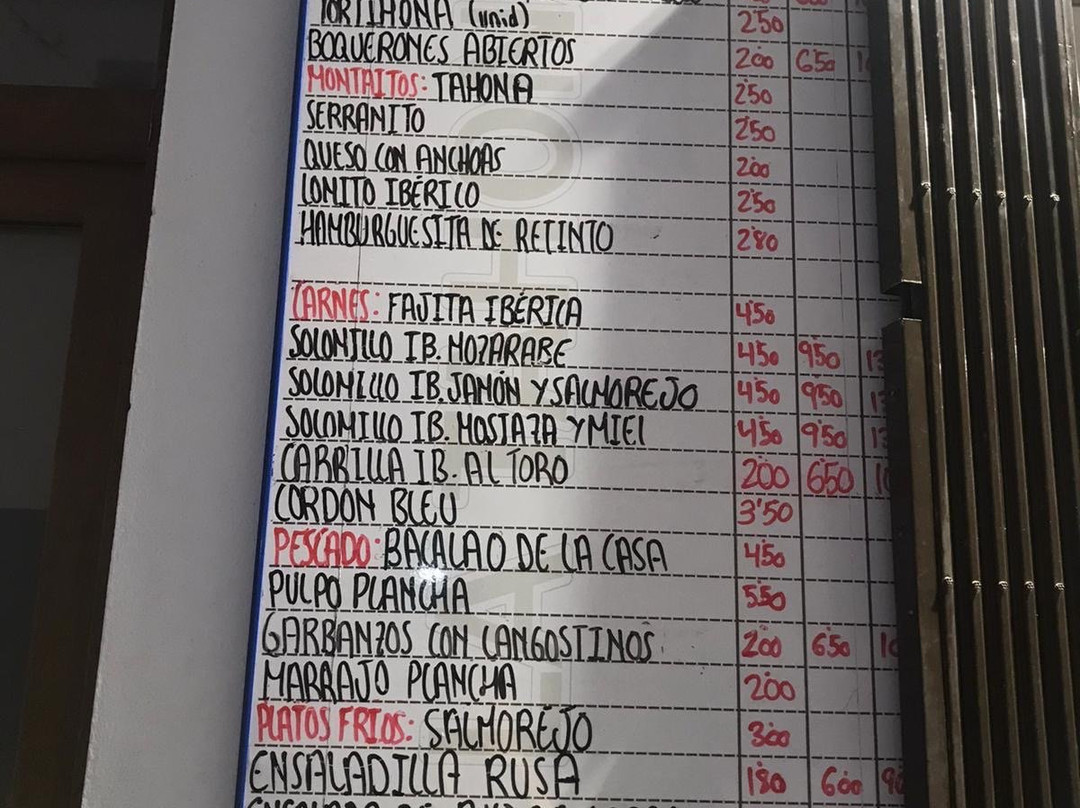 TORTIHONA (unid) 2'50
BOQUERONES ABIERTOS 2'00 6'50
MONTAITOS: TAHONA 2'50
SERRANITO 2'50
QUESO CON ANCHOAS 2'00
LOMITO IBÉRICO 2'50
HAMBURGUESITA DE RETINTO 2'80
CARNES: FAJITA IBÉRICA 4'50
SOLOMILLO IB. MOZARABE 4'50 9'50
SOLOMILLO IB. JAMÓN Y SALMOREJO 4'50 9'50
SOLOMILLO IB. MOSTAZA Y MIEL 4'50 9'50
CARRILLA IB. AL TORO 2'00 6'50
CORDON BLEU 3'50
PESCADO: BACALAO DE LA CASA 4'50
PULPO PLANCHA 5'50
GARBANZOS CON LANGOSTINOS 2'00 6'50
MARRAJO PLANCHA 2'00
PLATOS FRIOS: SALMOREJO 3'00
ENSALADILLA RUSA 1'80 6'00